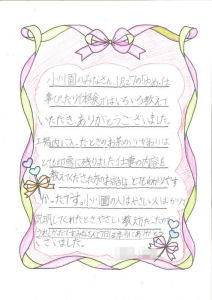 小川園のみなさん、1月27
いろいろ教えて
いただき、ありがとうございました。
工場内に入ったときのお茶のいいかおりは
とても印象に残りました。仕事の内容を
教えてくださった方のお話は とても分かりやす
かったです。小川園の人はやさしい人ばかりで
説明してくれたときやさしい教え方だったので
うれしかったです。
ございました。